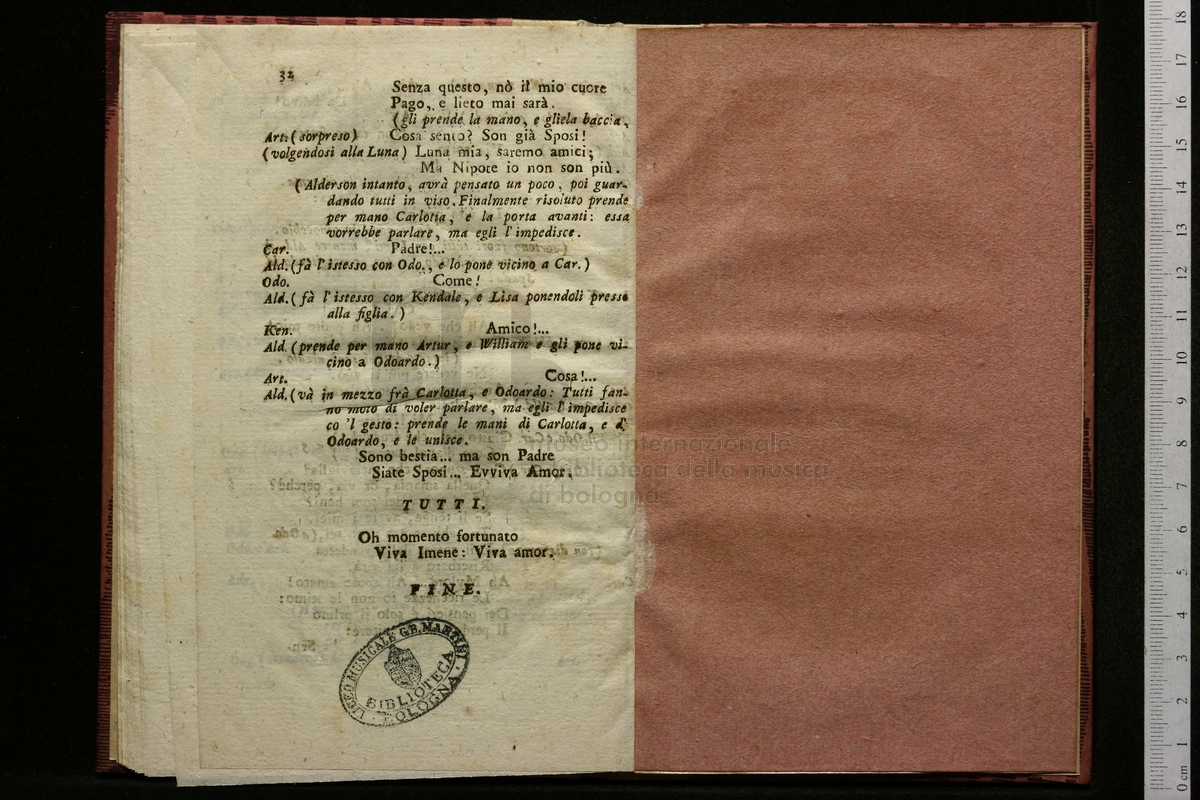 32
Senza questo, nò il mio cuore
Pago, e lieto mai sarà.
(gli prende la mano, e gliela baccia,
Art. (sorpreso) Cosa sento? Son già Sposi!
(volgendosi alla Luna) Luna mia, saremo amici;
Ma Nipote io non son più.
(Alderson intanto, avrà pensato un poco, poi guar-
dando tutti in viso. Finalmente risoluto prende
per mano Carlotta, e la porta avanti: essa
vorrebbe parlare, ma egli l'impedisce.
Car. Padre!...
Ald. (fà l'istesso con Odo., e lo pone vicino a Car.)
Odo. Come!
Ald. (fà l'istesso con Kendale, e Lisa ponendoli presso
alla figlia.)
Ken. Amico!...
Ald. (prende per mano Artur, e William e gli pone vi-
cino a Odoardo.)
Art. Cosa!...
Ald. (và in mezzo frà Carlotta, e Odoardo: Tutti fan-
no moto di voler parlare, ma egli l'impedisce
co 'l gesto: prende le mani di Carlotta, e d'
Odoardo, e le unisce.
Sono bestia... ma son Padre
Siate Sposi... Evviva Amor.
TUTTI.
Oh momento fortunato
Viva Imene: Viva amor.
FINE.
LICEO MUSICALE G.B. MARTINI
BIBLIOTECA
BOLOGNA
museo internazionale
e biblioteca della musica
di bologna
0 cm 1 2 3 4 5 6 7 8 9 10 11 12 13 14 15 16 17 18